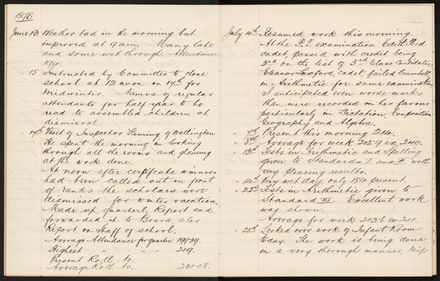 1898
June 13 Weather bad in the morning but
improved at 9 am. Many late
and some wet through. Attendance
179.
" 15 Instructed by Committee to close
school at 12 noon on 17th for
Midwinter. Names of regular
attendants for half year to be
read to assembled children at
dismissal.
17th Visit of Inspector Fleming of Wellington.
He spent the morning in looking
through all the rooms and glancing
at the work done.
At noon after certificate winners
had been called out in front
of ranks the scholars were
dismissed for winter vacation.
Made up Quarterly Report and
forwarded it to Board also
Report on Staff of school.
Average Attendance for quarter 197.39.
Highest " " " 219.
Present Roll No.
Average Roll No. 201.05.
July 4th Resumed work this morning.
At the P.T. examination Edith Red
cadet, passed with credit being
3rd on the list of 3rd Class Candidates.
Eleanor Stanford, cadet failed
in Arithmetic for some examination
I anticipated even words marks
than were recorded in her favour
particularly in Recitation, Composition
Geography and Algebra.
" 7th Present this morning 240.
" 8th Average for week 232.7 on 240.
" 13th Tests in Arithmetic and Spelling
given to Standards I and V with
very pleasing results.
" 14th Very wet day only 184 present.
" 22nd Tests in Arithmetic given to
Standard III. Excellent work
was shown.
Average for week 213.6 on 241.
" 25th Looked over work of Infant Room
today. The work is being done
in a very thorough manner. Miss